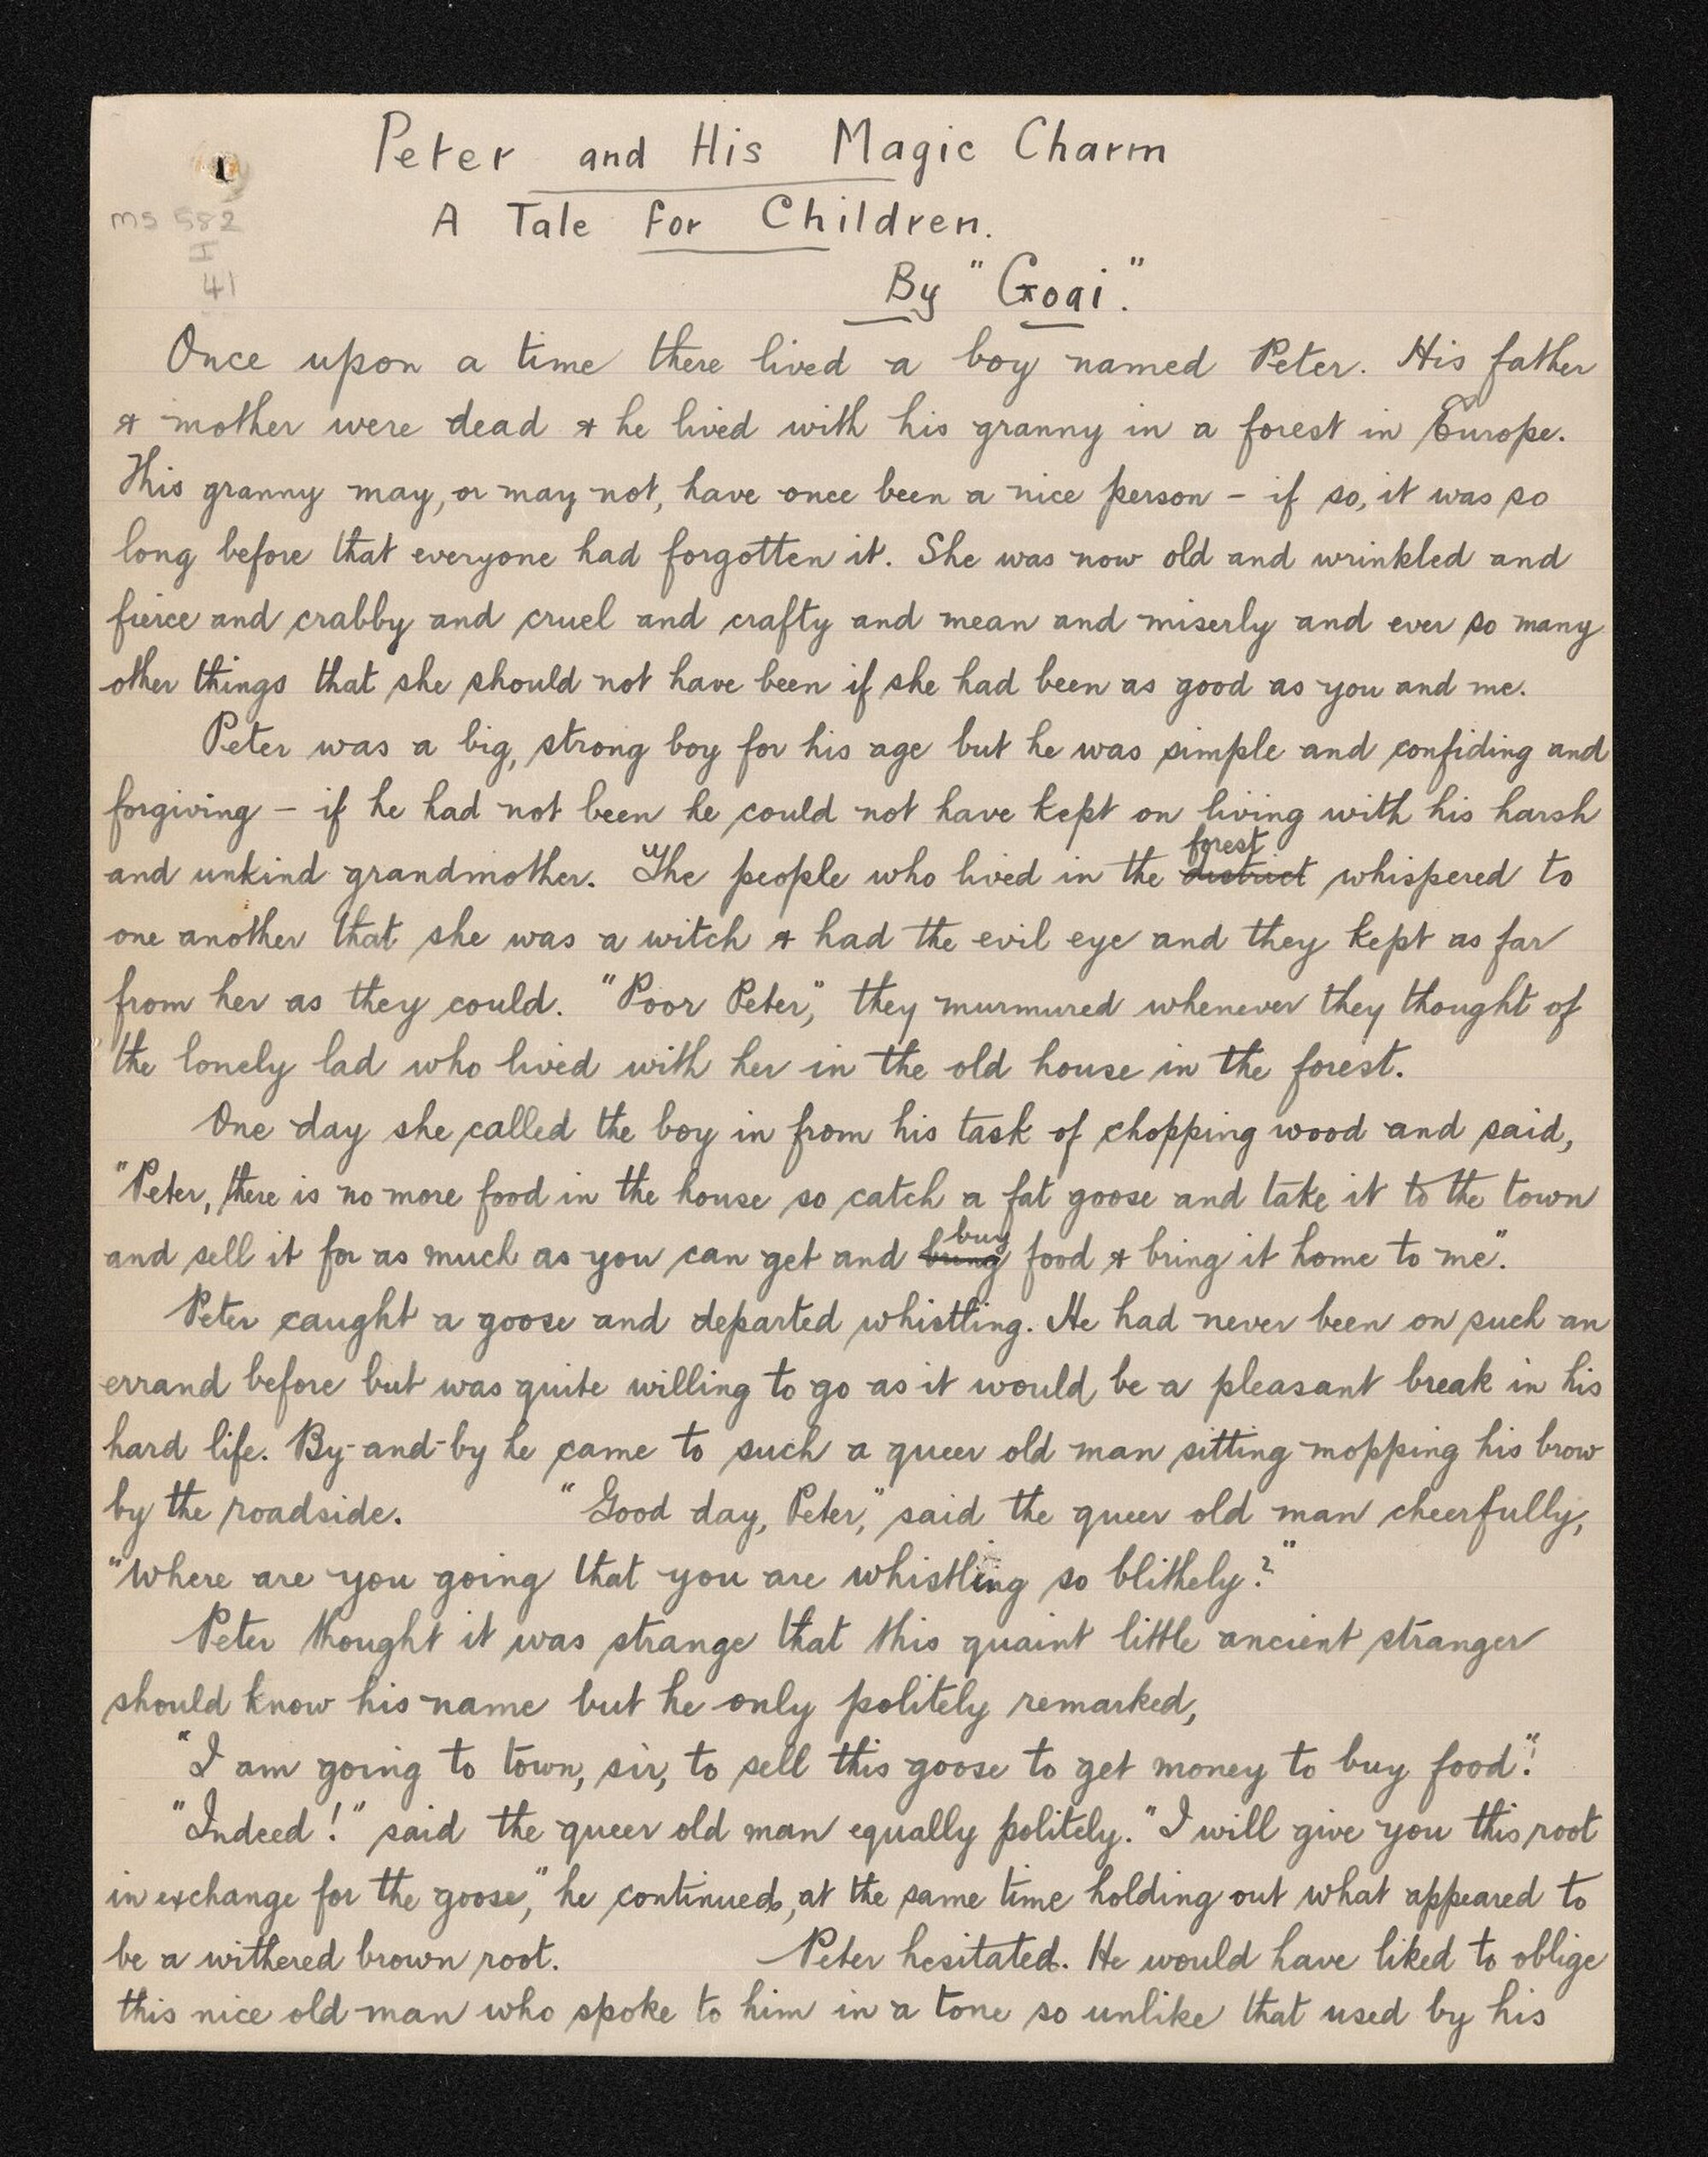 Peter and His Magic Charm
A Tale for Children.
By "Gogi."
MS 582
I
41
Once upon a time there lived a boy named Peter. His father
& mother were dead & he lived with his granny in a forest in Europe.
This granny may, or may not, have once been a nice person - if so, it was so
long before that everyone had forgotten it. She was now old and wrinkled and
fierce and crabby and cruel and crafty and mean and miserly and ever so many
other things that she should not have been if she had been as good as you and me.
Peter was a big, strong boy for his age but he was simple and confiding and
forgiving - if he had not been he could not have kept on living with his harsh
and unkind grandmother. The people who lived in the district forest whispered to
one another that she was a witch & had the evil eye and they kept as far
from her as they could. "Poor Peter," they murmured whenever they thought of
the lonely lad who lived with her in the old house in the forest.
One day she called the boy in from his task of chopping wood and said,
"Peter, there is no more food in the house so catch a fat goose and take it to the town
and sell it for as much as you can get and bring buy food & bring it home to me".
Peter caught a goose and departed whistling. He had never been on such an
errand before but was quite willing to go as it would be a pleasant break in his
hard life. By-and-by he came to such a queer old man sitting mopping his brow
by the roadside. "Good day, Peter," said the queer old man cheerfully,
"Where are you going that you are whistling so blithely?"
Peter thought it was strange that this quaint little ancient stranger
should know his name but he only politely remarked,
"I am going to town, sir, to sell this goose to get money to buy food".
"Indeed!" said the queer old man equally politely. "I will give you this root
in exchange for the goose," he continued, at the same time holding out what appeared to
be a withered brown root. Peter hesitated. He would have liked to oblige
this nice old man who spoke to him in a tone so unlike that used by his